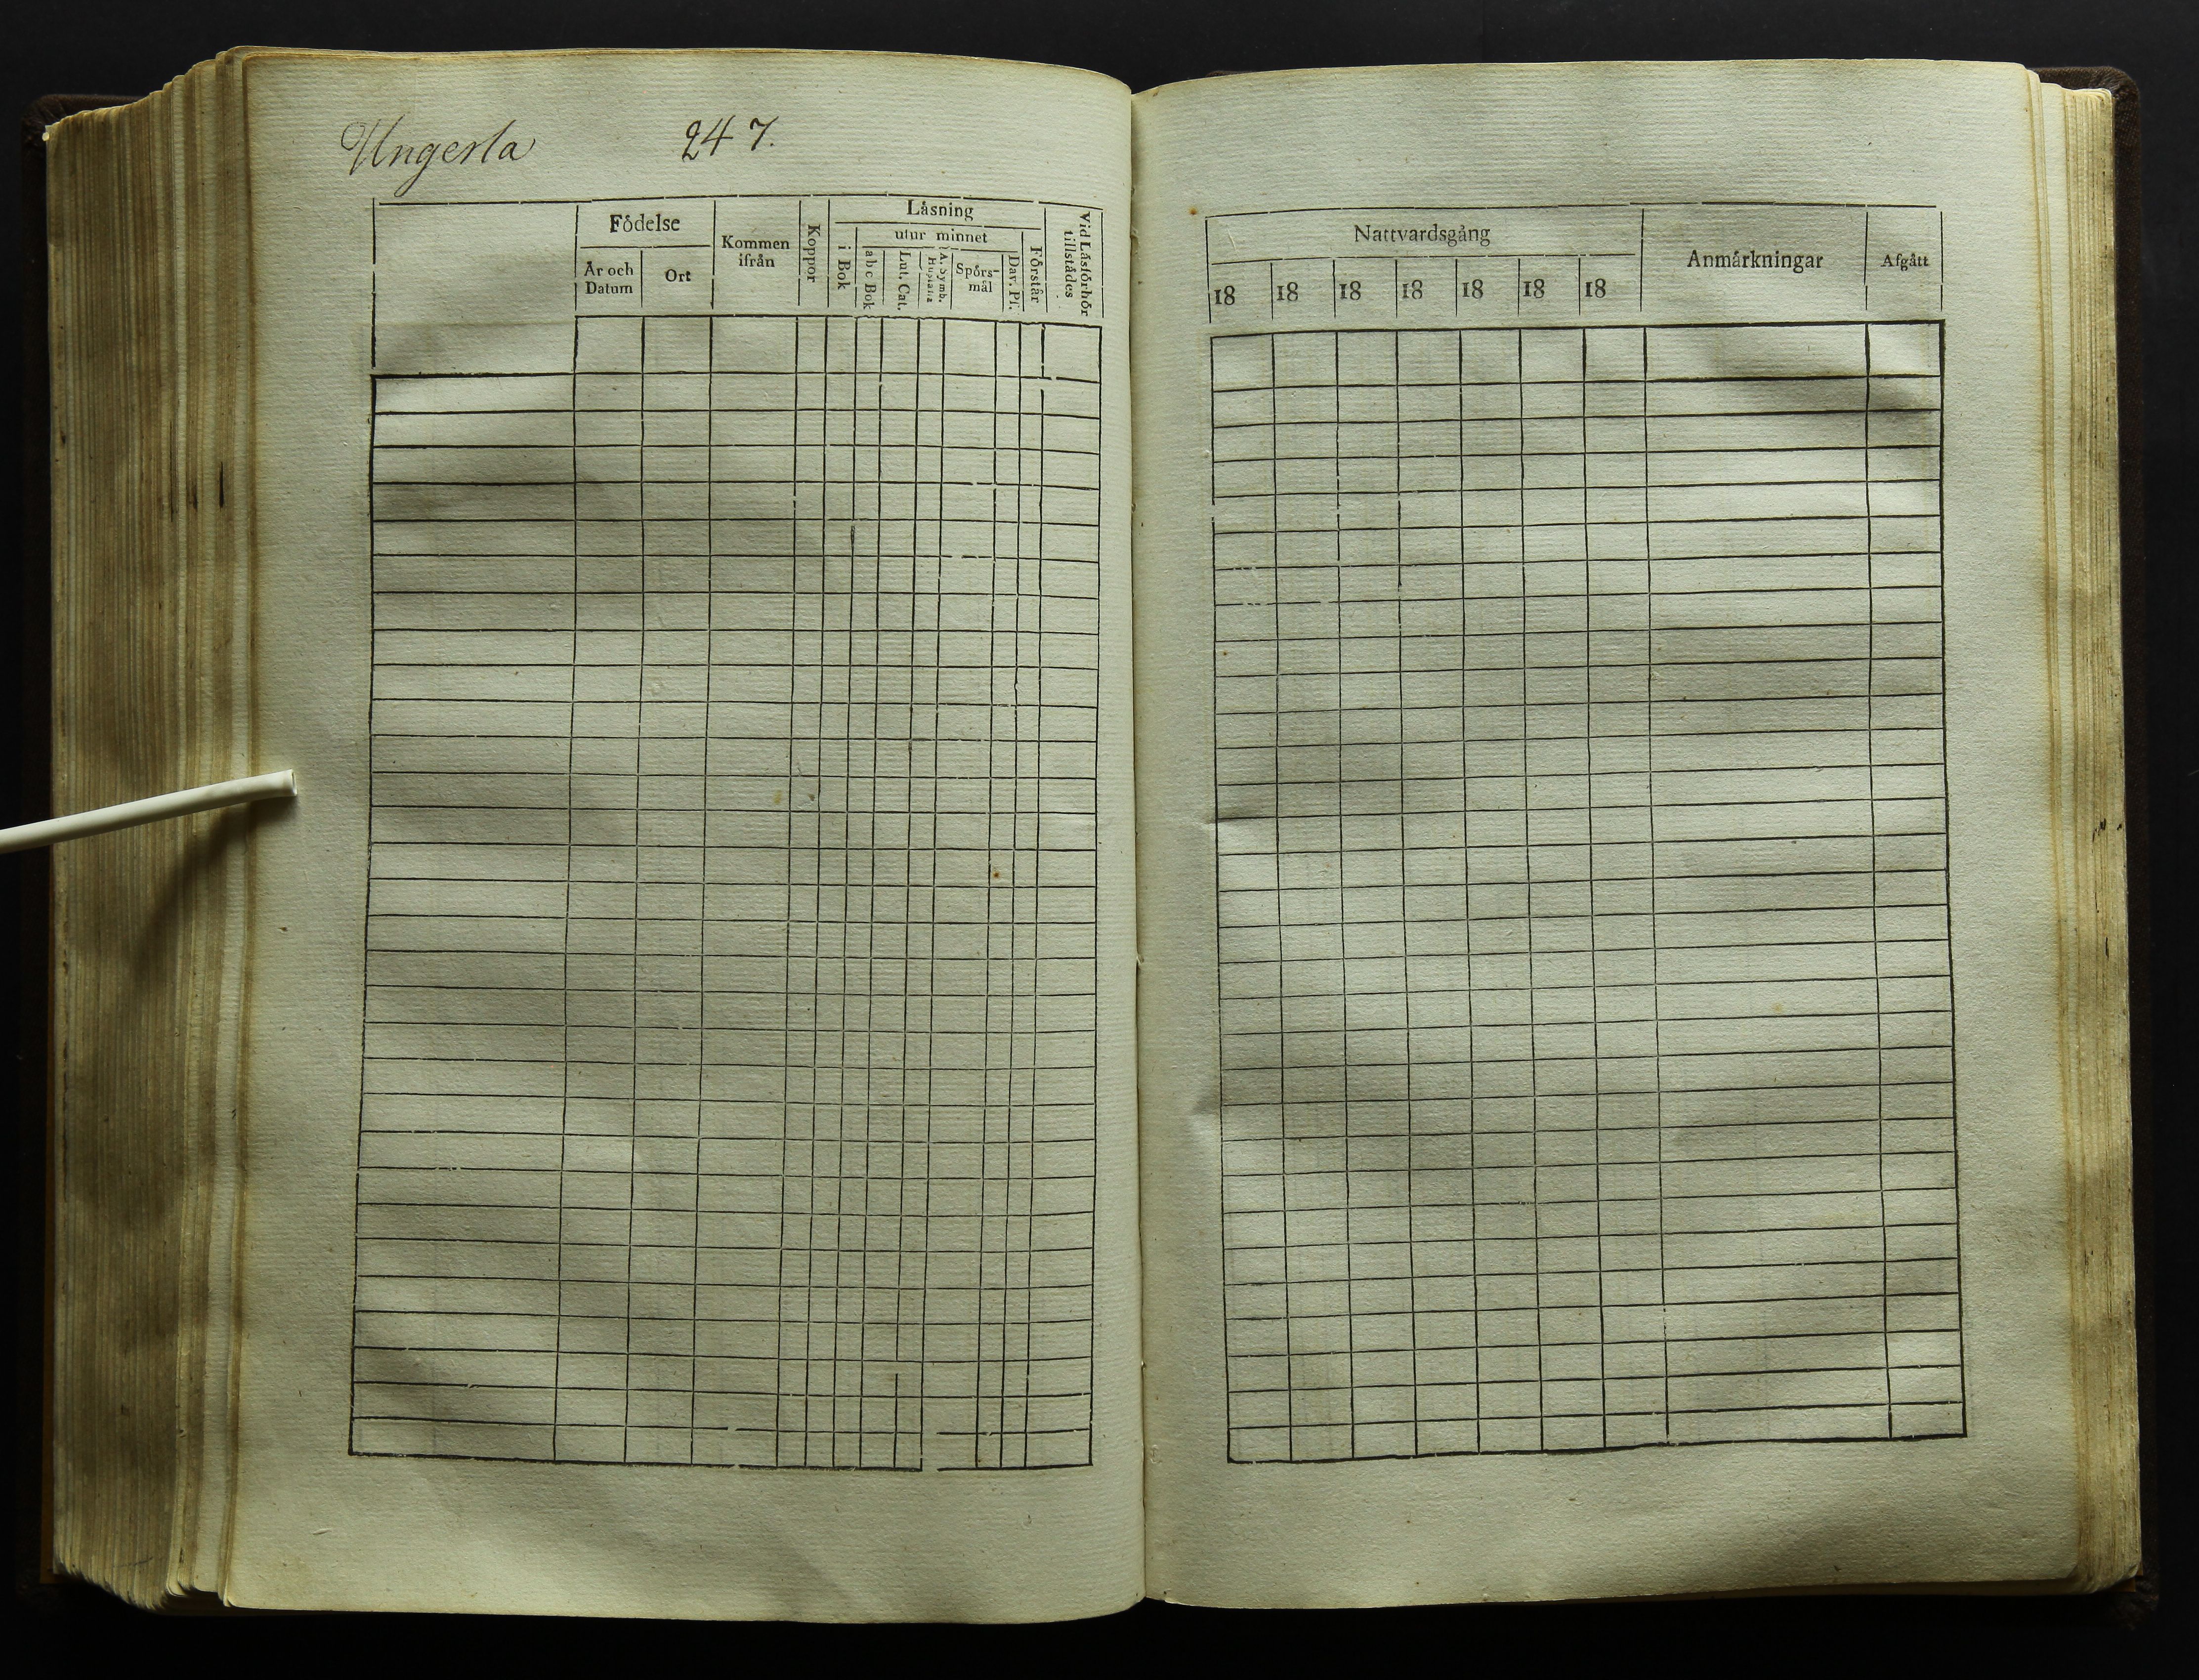 Ungerla 247.
Födelse
År och Datum
Ort
Kommen ifrån
Koppor
Läsning
i Bok
utur minnet
abc Bok
Lut. Cat.
A. Symb.
Spörsmål
Dav. Ps.
Förstår
Vid Läsförhör tillstädes
Nattvardsgång
18 18 18 18 18 18 18
Anmärkningar
Afgått